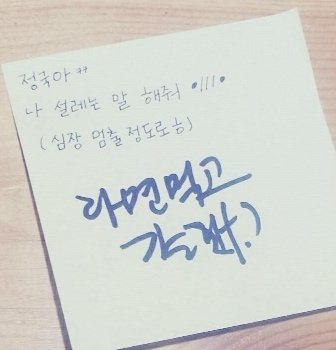 정국아 **
나 설레는 말 해줘 •///•
(심장 멈출 정도로ㅎ)
라면먹고
갈래?